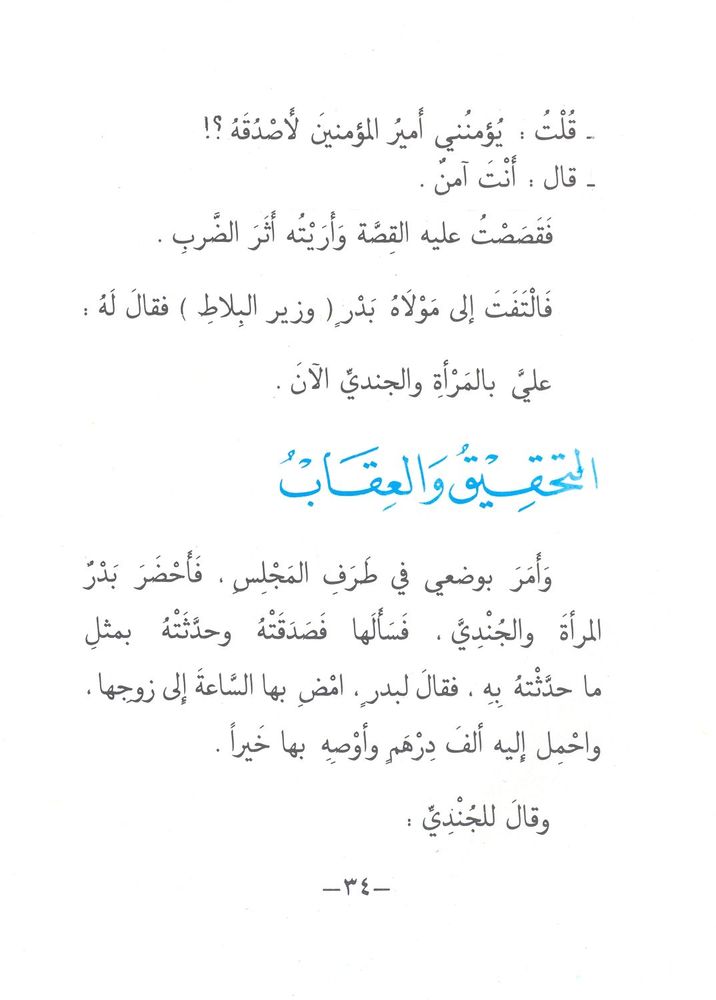 ـ قُلْتُ : يُؤمنُني أَميرُ المؤمنينَ لأَصْدُقَهُ ؟!
ـ قال : أَنْتَ آمنٌ .
فَقَصَصْتُ عليه القِصَّة وَأَرَيْتُه أَثَرَ الضَّربِ .
فَالْتَفَتَ إلى مَوْلَاهُ بَدْرٍ ( وزير البِلاطِ ) فقالَ لَهُ :
عليَّ بالمَرْأةِ والجنديِّ الآنَ .
التحقِيقُ وَالعِقَابُ
وَأَمَرَ بوضعي في طَرَفِ المَجْلِسِ ، فَأَحْضَرَ بَدْرٌ
المرأةَ والجُنْدِيَّ ، فَسَأَلَها فَصَدَقَتْهُ وحدَّثَتْهُ بمثلِ
ما حدَّثْتهُ بِهِ ، فقالَ لبدرٍ ، امْضِ بها السَّاعةَ إِلى زوجِها ،
واحْمِل إِليه ألفَ دِرْهَمٍ وأوْصِهِ بها خَيراً .
وقالَ للجُنْدِيِّ :
–٣٤–